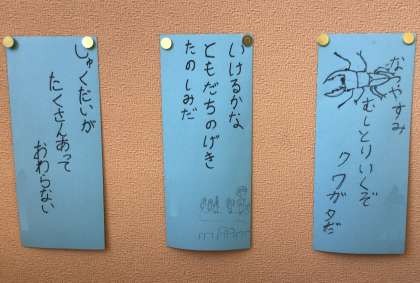 なつやすみ
むしとりいくぞ
クワガタだ
いけるかな
ともだちのげき
たのしみだ
しゅくだいが
たくさんあって
おわらない